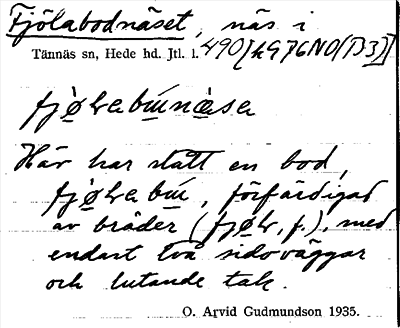 Fjölabodnäset, näs i
Tännäs sn, Hede hd. Jtl. l. 490[hG76NO(D3)]
fjø̀ʟabúnæ̀sa
Här har stått en bod,
fjø̀ʟabú, förfärdigad
av bräder (fjøʟ, f.), med
endast två sidoväggar
och lutande tak.
O. Arvid Gudmundson 1935.